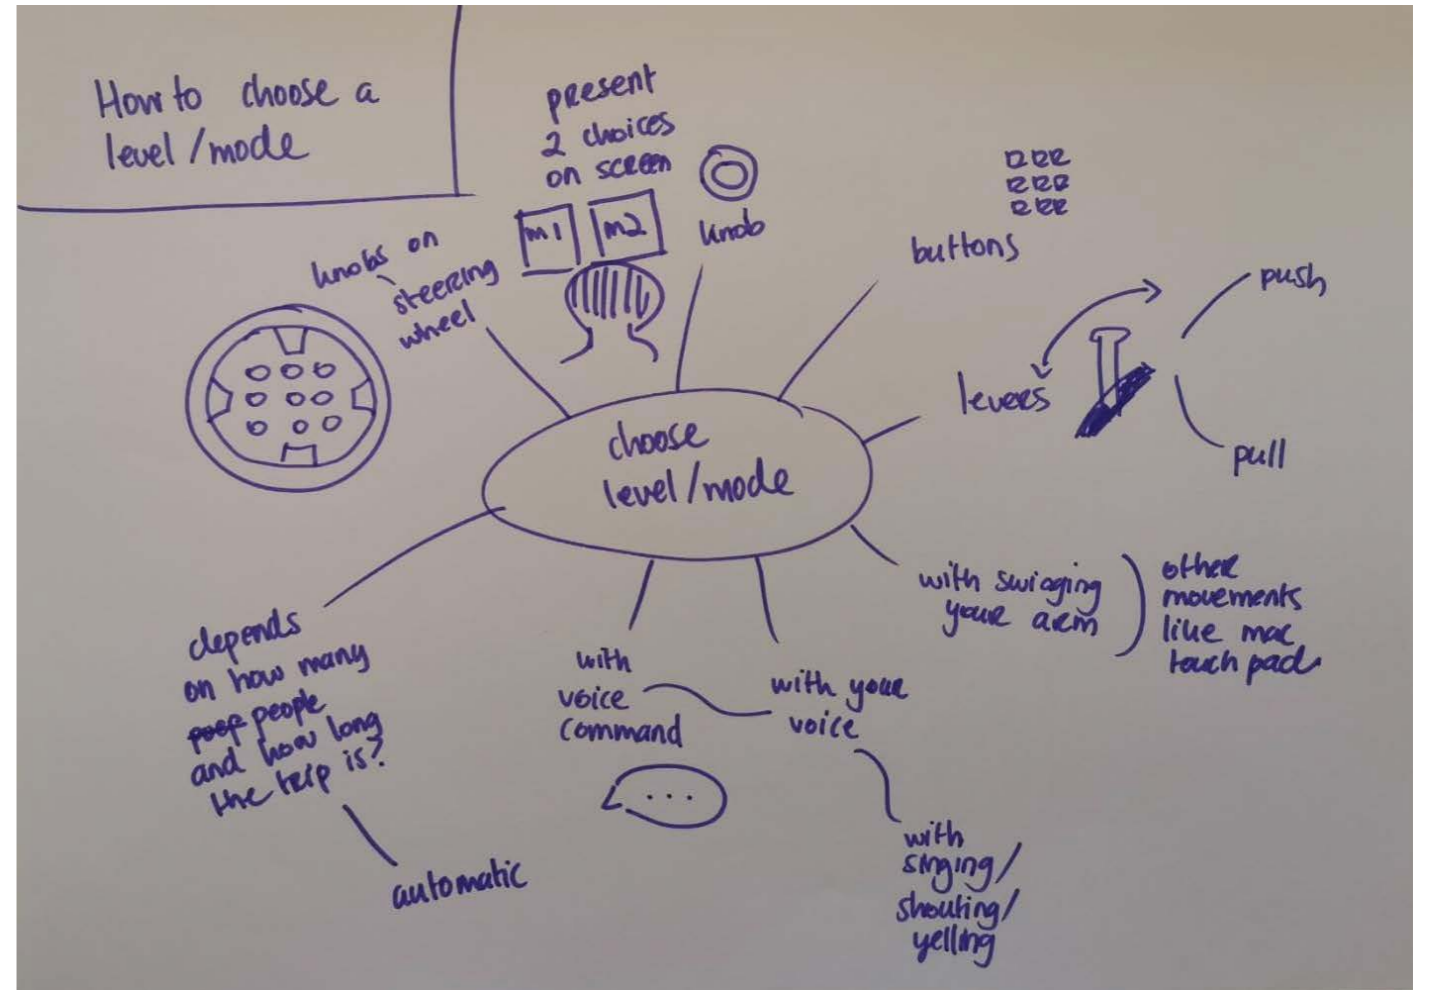 How to choose a
level/mode
present
2 choices
on screen
m1 m2
knob
buttons
knobs on
steering
wheel
levers
push
pull
choose
level/mode
with swinging
your arm
other
movements
like mac
touch pad
with
voice
command
...
with your
voice
with
singing/
shouting/
yelling
depends
on how many
people
and how long
the trip is?
automatic